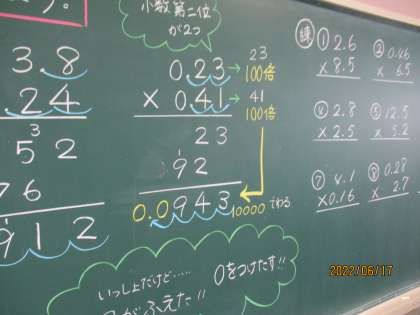 す。
3.8
.24
3
52
76
912
小数第二位
が2つ
0.23 → 23
100倍
× 0.41 → 41
100倍
1
23
92
0.0943
10000でわる
いっしょうだけど……
0をつけたす!!
がふえた!!
練
① 2.6
× 8.5
② 0.46
× 6.5
④ 2.8
× 2.5
⑤ 12.5
× 5.2
⑦ 4.1
× 0.16
⑧ 0.28
× 2.7
2022/06/17